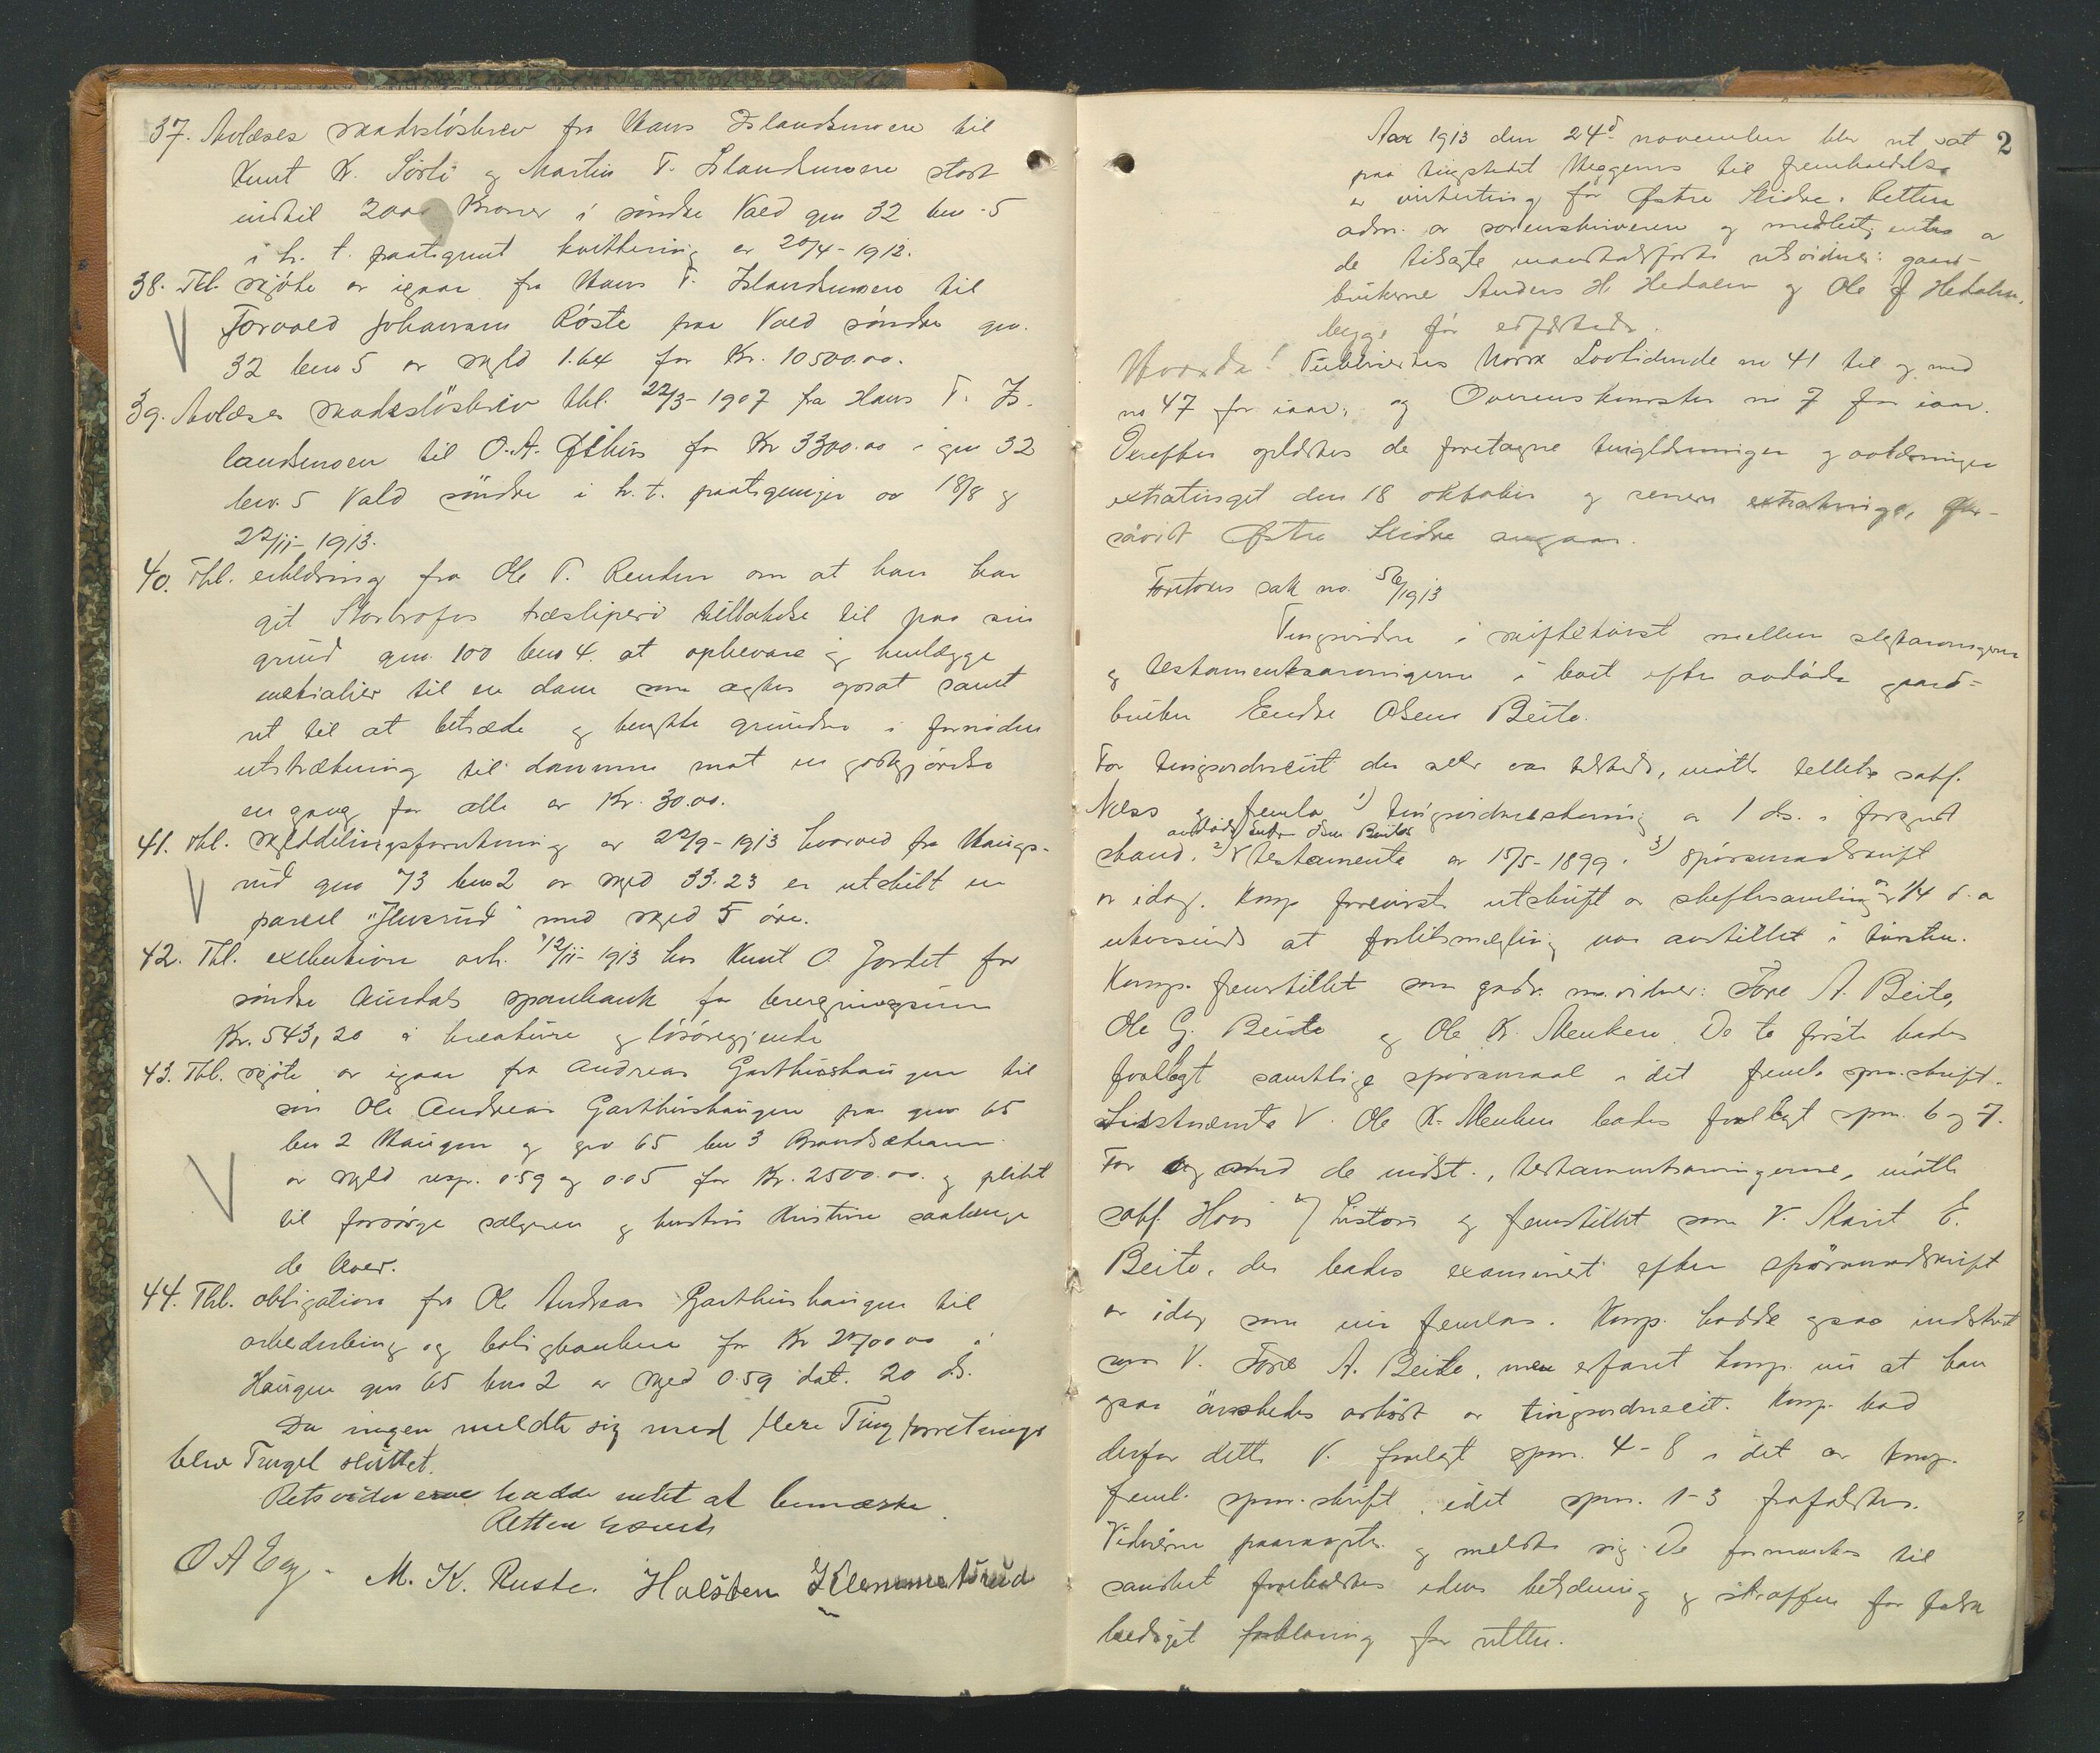 37. Avlæses skadesløsbrev fra Hans Islandsmoen til
Knut K. Sørli og Martin T. Islandsmoen stort
indtil 2000 Kroner i søndre Vold gno 32 bno 5
i h. t. paategnet kvittering av 20/4-1912.
38. Thl. skjøte av igaar fra Hans T. Islandsmoen til
Torvald Johansen Røste paa Vold søndre gno.
32 bno 5 av skyld 1.64 for Kr. 10500.00.
39. Avlæses skadesløsbrev thl. 22/3-1907 fra Hans T. Is-
landsmoen til O.A. for Kr 3300.00 i gno 32
bno. 5 Vold søndre i h. t. paategninger av 18/8 og
22/11-1913.
40. Thl. erklæring fra Ole T. Renden om at han har
git Storbrofos træsliperi tilladelse til paa sin
grund gno. 100 bno 4. at opbevare og henlægge
materialier til en dam som agtes gjort samt
ret til at betræde og benytte grunden i fornøden
utstrækning til dammen mot en godtgjørelse
en gang for alle av Kr. 30.00.
41. Thl. skylddelingsforretning av 22/9-1913 hvorved fra Haugs-
rud gno 73 bno 2 av skyld 33.23 er utskilt en
parcel "" med skyld 5 øre.
42. Thl. exekution avh. 12/11-1913 hos Knut O. Jordet for
søndre Aurdals sparebank for beregningssum
Kr. 543,20 i kreaturer og løsøregjenstande
43. Thl. skjøte av igaar fra Andreas Garthushaugen til
søn Ole Andreas Garthushaugen paa gno 65
bno 2 Haugen og gno 65 bno 3 Brandsætrene
av skyld resp. 0.59 og 0.05 for Kr. 2500.00. og plikt
til forsørge sælgeren og hustru Kristine saalænge
de lever.
44. Thl. obligation fra Ole Andreas Garthushaugen til
arbeiderbruk og boligbanken for Kr 2700.00 i
Haugen gno 65 bno 2 av skyld 0.59 dat. 20 ds.
Da ingen meldte sig med flere Ting forretninger
blev Tinget sluttet.
Retsvidnerne hadde intet at bemærke.
Retten hævet
O A Eeg. M. K. Ruste. Halsten Klemmetsrud
2
Aar 1913 den 24d. november blev ret sat
paa tingstedet Heggenes til fremholdelse
av vinterting for Østre Slidre. Retten
adm. av sorenskriveren og medbetjentes av
de tilsagte mandtalsførte retsvidner: gaard-
brukerne Anders H. Hedalen og Ole J Hedalen,
begge før edfæstede.
Hvorda! Publiceredes Norsk Lovtidende no 41 til og med
no 47 for iaar, og Overenskomster no 7 for iaar.
Derefter oplæstes de foretagne tinglæsninger og avlæsninger
extratinget den 18 oktober og senere extratinge, for-
saavidt Østre Slidre angaar.
Foretoges sak no. 56/1913
Tingsvidne i skiftetvist mellem slegtsarvingerne
og testamentsarvingerne i boet efter avdøde gaard-
bruker Endre Olsen Beito.
For tingsvidnerekvirenten der selv var tilstede, møtte tellets sakf.
Ness og fremla 1) tingsvidnestevning av 1 ds. i forkyndt
avdøde Endre Olsen Beitos
stand, 2) V testamente av 15/5-1899. 3) spørsmaalsskrift
av idag. Komp foreviste utskrift av skiftesamling av 1/4 d.a
utvisende at forliksmægling var anstillet i tvisten.
Komp. fremstillet som gode m. vidner: Tore A. Beito,
Ole G. Beito og Ole K. Menken. De to første bades
forelagt samtlige spørsmaal i det freml. spm.skrift.
Sidstnævnte V. Ole K. Menken bades forelagt spm. 6 og 7.
For og med de indst., testamentsarvingerne, møtte
sakf. Hovi og fremstillet som V. Marit E.
Beito, der bades examineret efter spørsmaalsskrift
av idag som nu fremlas. Komp. hadde ogsaa indstevnt
som V. Tore A. Beito, men erfaret komp. nu at han
ogsaa ønskedes avhørt av tingsvidnerekvirent. Komp. bad
derfor dette V. forelagt spm. 4-8 i det av komp.
freml. spm.skrift, idet spm. 1-3 frafaldtes.
Vidnerne paaraaptes og meldte sig. De formantes til
sandhet foreholdtes edens betydning og straffen for falsk
beediget forklaring for retten.